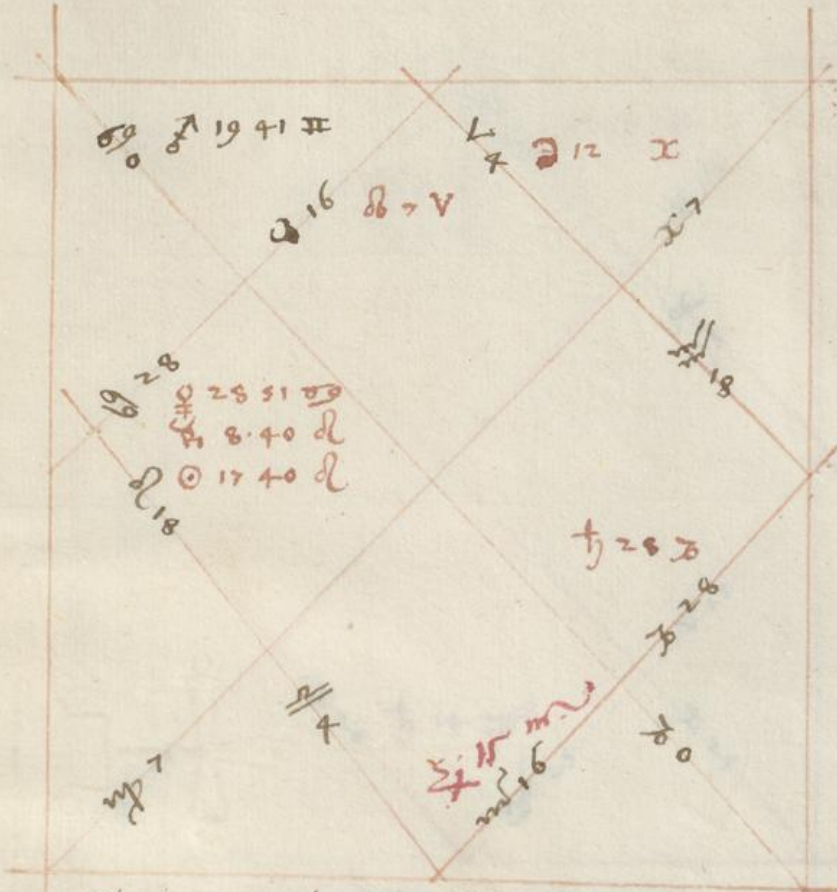 ♋ 0 ♂ 19 41 ♊
♈ 4 ☽ 12 ♓
♉ 16 ☊ 7 ♈
♓ 7
♋ 28
♀ 28 51 ♋
☿ 8·40 ♌
☉ 17 40 ♌
♒ 18
♌ 18
♄ 28 ♑
♑ 28
♎ 4
♃ 15 ♏
♏ 16
♑ 0
♍ 7